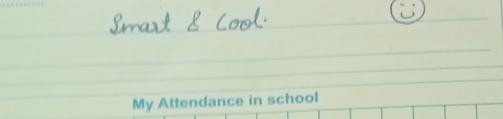 Smart & Cool.
My Attendance in school